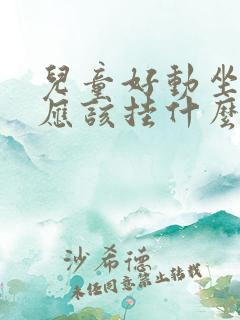 兒童好動坐
應該挂什麼
沙希德
未经同意禁止转载